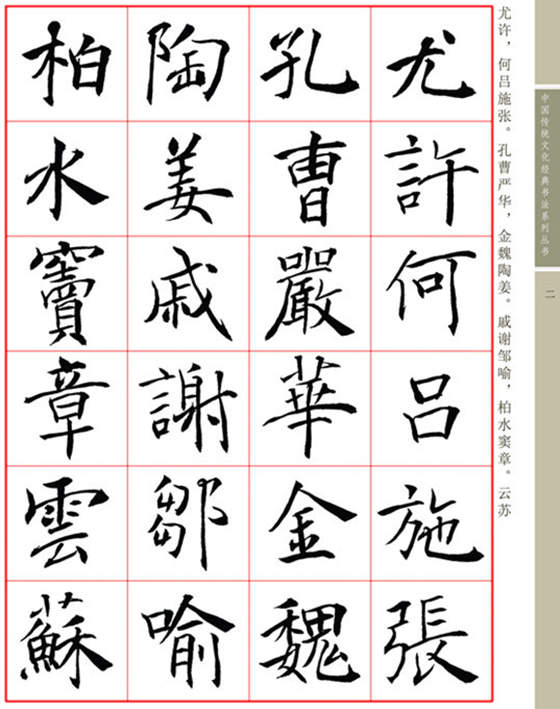 尤許何吕施張
孔曹嚴華金魏
陶姜戚謝鄒喻
柏水竇章雲蘇
尤许，何吕施张。孔曹严华，金魏陶姜。戚谢邹喻，柏水窦章。云苏
中国传统文化经典书法系列丛书
二